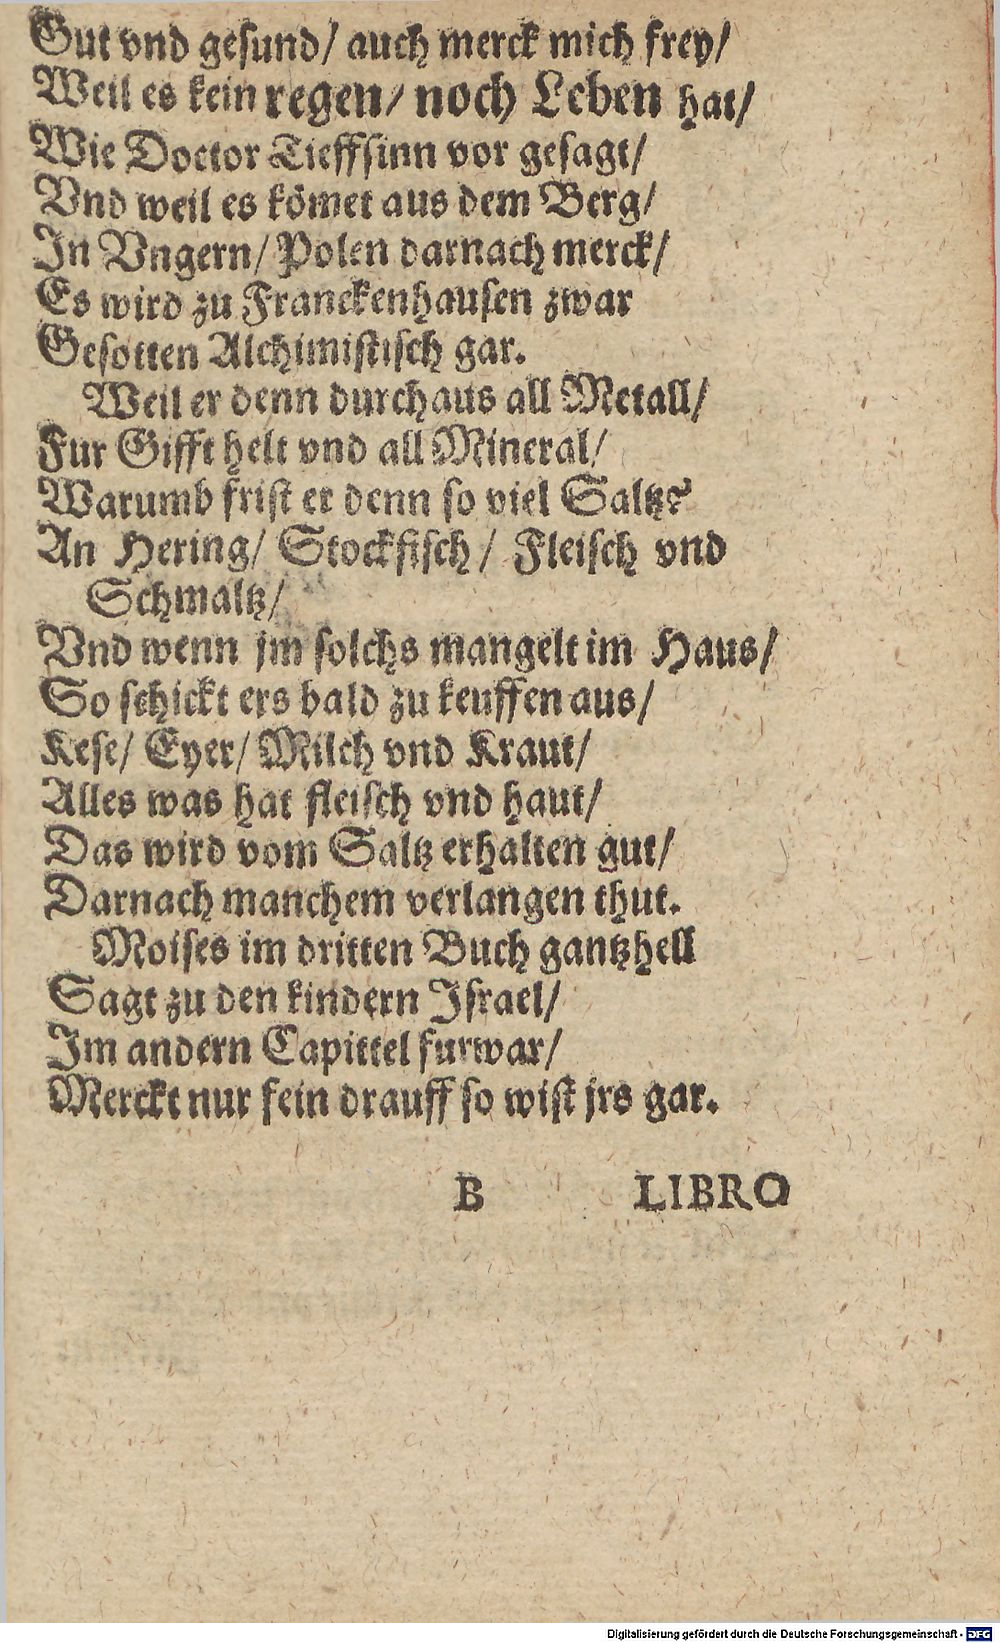 Gut vnd gesund/ auch merck mich frey/
Weil es kein regen/ noch Leben hat/
Wie Doctor Tieffsinn vor gesagt/
Vnd weil es kömet aus dem Berg/
In Vngern/ Polen darnach merck/
Es wird zu Franckenhausen zwar
Gesotten Alchimistisch gar.
Weil er denn durchaus all Metall/
Fur Gifft helt vnd all Mineral/
Warumb frist er denn so viel Saltz?
An Hering/ Stockfisch/ Fleisch vnd
Schmaltz/
Vnd wenn jm solchs mangelt im Haus/
So schickt ers bald zu keuffen aus/
Kese/ Eyer/ Milch vnd Kraut/
Alles was hat fleisch vnd haut/
Das wird vom Saltz erhalten gut/
Darnach manchem verlangen thut.
Moises im dritten Buch gantz hell
Sagt zu den kindern Israel/
Im andern Capittel furwar/
Merckt nur fein drauff so wist jrs gar.
B LIBRO
Digitalisierung gefördert durch die Deutsche Forschungsgemeinschaft - DFG